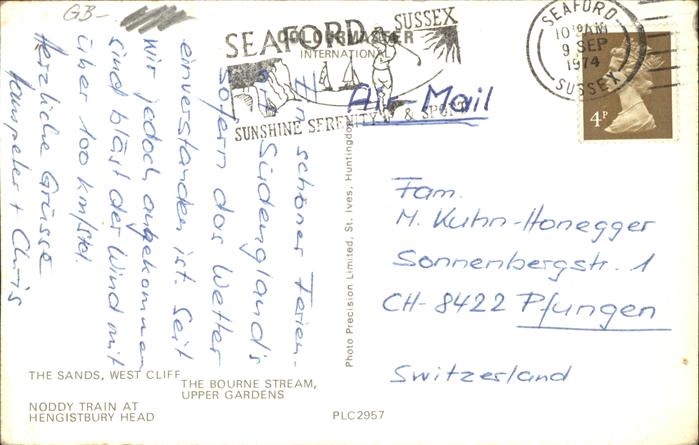 GB-
SEAFORD SUSSEX
COLOURMASTER
INTERNATIONAL
SUNSHINE SERENITY & SPORT
SEAFORD
10 AM
9 SEP
1974
SUSSEX
4P
Air-Mail
Ein schöner Ferien-
ort Südengland's
sofern das Wetter
einverstanden ist. Seit
wir jedoch angekommen
sind bläst der Wind mit
über 100 km/Std.
Herzliche Grüsse
Hanspeter + Chris
Photo Precision Limited, St. Ives, Huntingdon
Fam.
M. Kuhn-Honegger
Sonnenbergstr. 1
CH-8422 Pfungen
Switzerland
THE SANDS, WEST CLIFF
THE BOURNE STREAM,
UPPER GARDENS
NODDY TRAIN AT
HENGISTBURY HEAD
PLC2957